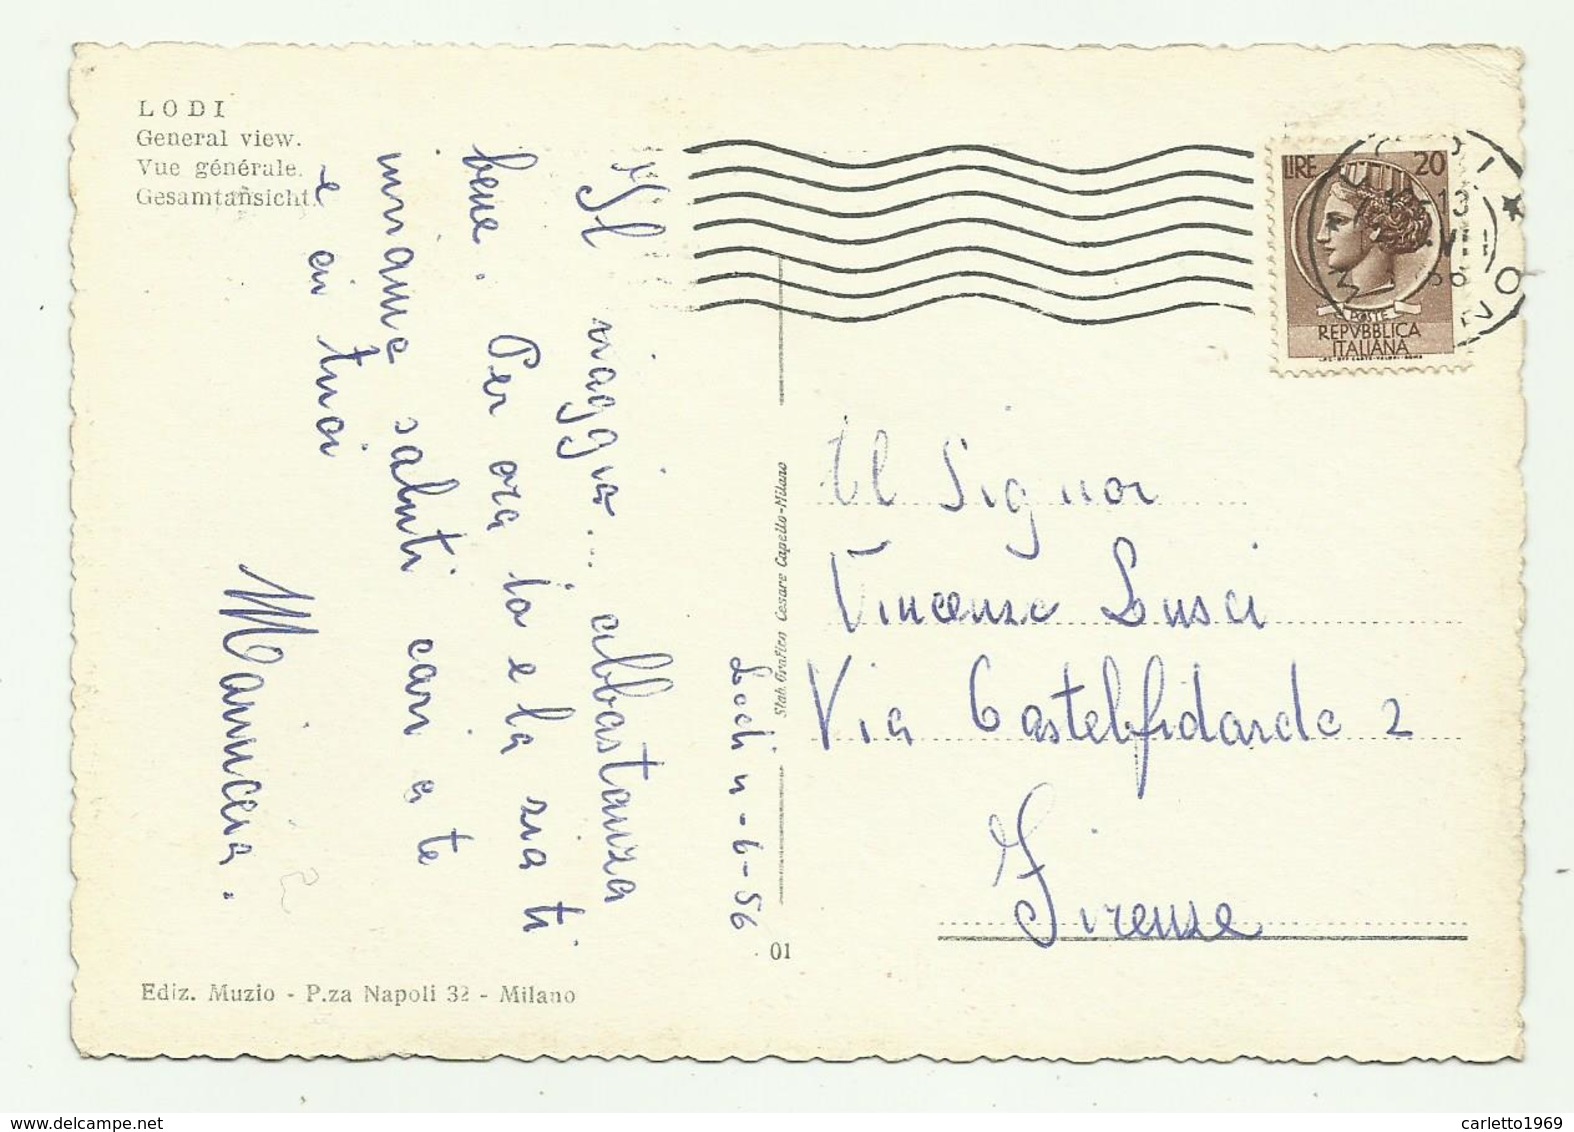 LODI
General view.
Vue générale.
Gesamtansicht.
Il viaggio... abbastanza
bene. Per ora io e la zia ti
inviamo saluti cari a te
e ai tuoi
Mariuccia.
Lodi 11-6-56
Stab. Grafico Cesare Capello-Milano
01
Ediz. Muzio - P.za Napoli 32 - Milano
LIRE 20
POSTE
REPVBBLICA
ITALIANA
Al Signor
Vincenzo Lusci
Via Castelfidardo 2
Firenze
carletto1969